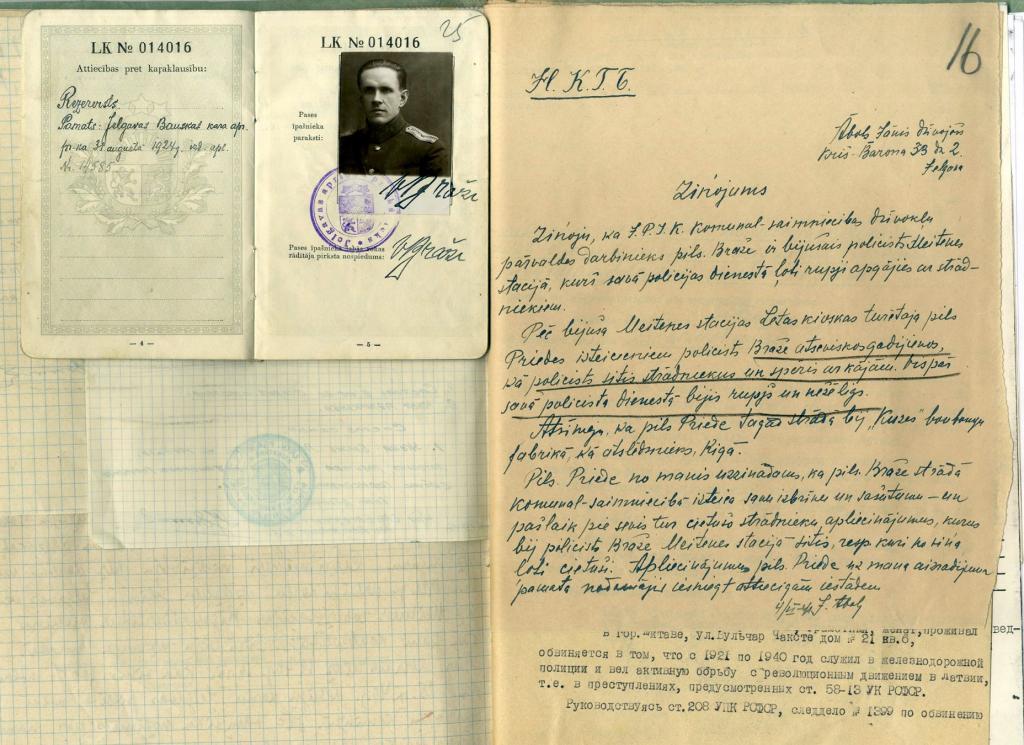 LK № 014016
Attiecības pret karaklausību:
Rezervists
Pamats: Jelgavas Bauskas kara apr.
pr-ka 31 augusta 1924 g. izd. apl.
№ 14585
— 4 —
25
LK № 014016
Pases
īpašnieka
paraksti:
Pases īpašnieka labās rokas
rādītāja pirksta nospiedums:
— 5 —
16
N. K. G. B.
Ābols Jānis dzīvojošs
Kriš. Barona 33 dz 2.
Jelgava
Ziņojums
Ziņoju, ka J.P.I.K. Komunal-saimniecības dzīvokļu
pārvaldes darbinieks pils. Braže ir bijušais policists Meitenes
stacijā, kurš savā policijas dienestā ļoti rupji apgājies ar strād-
niekiem.
Pēc bijušā Meitenes stacijas Letas kioskas turētāja pils
Priedes izteicieniem policists Braže atseviskos gadījienos,
kā policists sitis strādniekus un spēris ar kājām. Vispār
savā policista dienestā bijis rupjš un nežēlīgs.
Atzīmēju, ka pils Priede tagad strādā bij. „Ķuzes" bonbongu
fabrikā, kā atslēdznieks, Rīgā.
Pils. Priede no manis uzzinādams, ka pils. Braže strādā
komunal-saimniecībā izteica savu izbrīnu un sašutumu — un
pašlaik pie sevis tur cietušo strādnieku apliecinājumus, kurus
bij. policists Braže Meitenes stacijā sitis, resp. kuri no viņa
ļoti cietuši. Apliecinājumus pils. Priede uz mana aizrādījuma
pamata nodomājis iesniegt attiecīgām iestādēm
J. Ābols
женат, проживал
в гор. Митаве, ул. Вульчар Чаксте дом № 21 кв. 6,
вед-
обвиняется в том, что с 1921 по 1940 год служил в железнодорожной
полиции и вел активную борьбу с революционным движением в Латвии,
т.е. в преступлениях, предусмотренных ст. 58-13 УК РСФСР.
Руководствуясь ст.208 УПК РСФСР, следдело № 1399 по обвинению